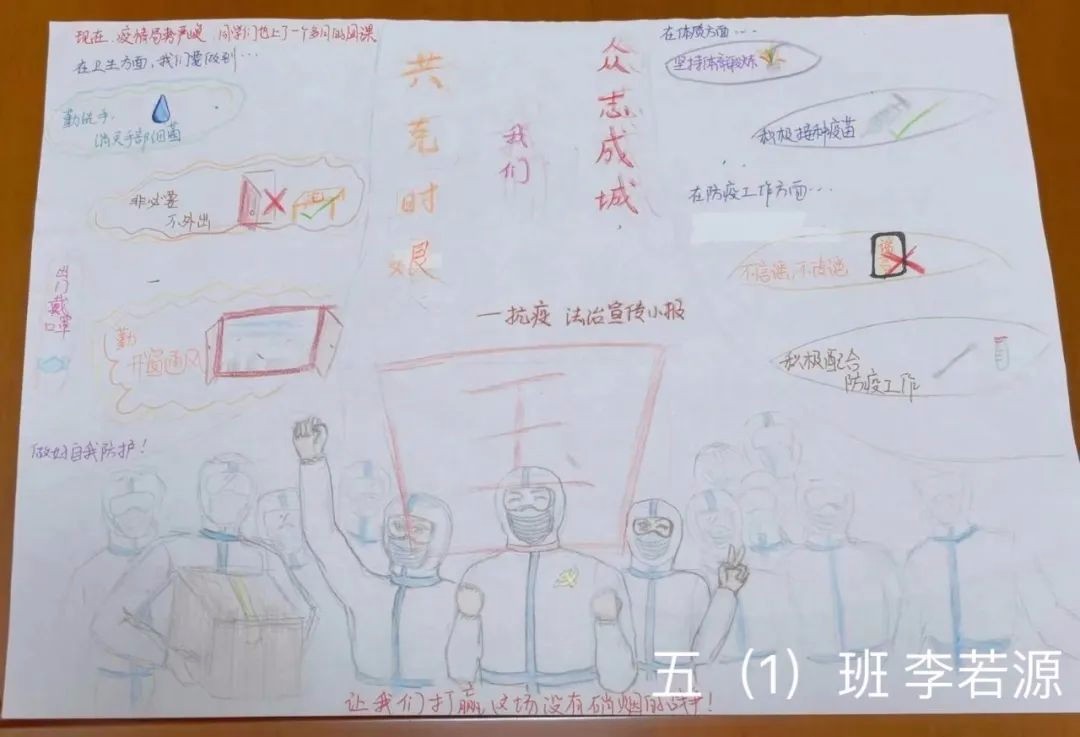 现在,疫情局势严峻,同学们也上了一个多月的网课
在卫生方面,我们要做到…
勤洗手,
消灭手部细菌
非必要
不外出
出门戴
口罩
勤
开窗通风
做好自我防护!
共克时艰
我们
众志成城,
—抗疫 法治宣传小报
在体质方面…
坚持体育锻炼
积极接种疫苗
在防疫工作方面…
不信谣,不传谣
谣言
积极配合
防疫工作
让我们打赢这场没有硝烟的战争!
五（1）班 李若源